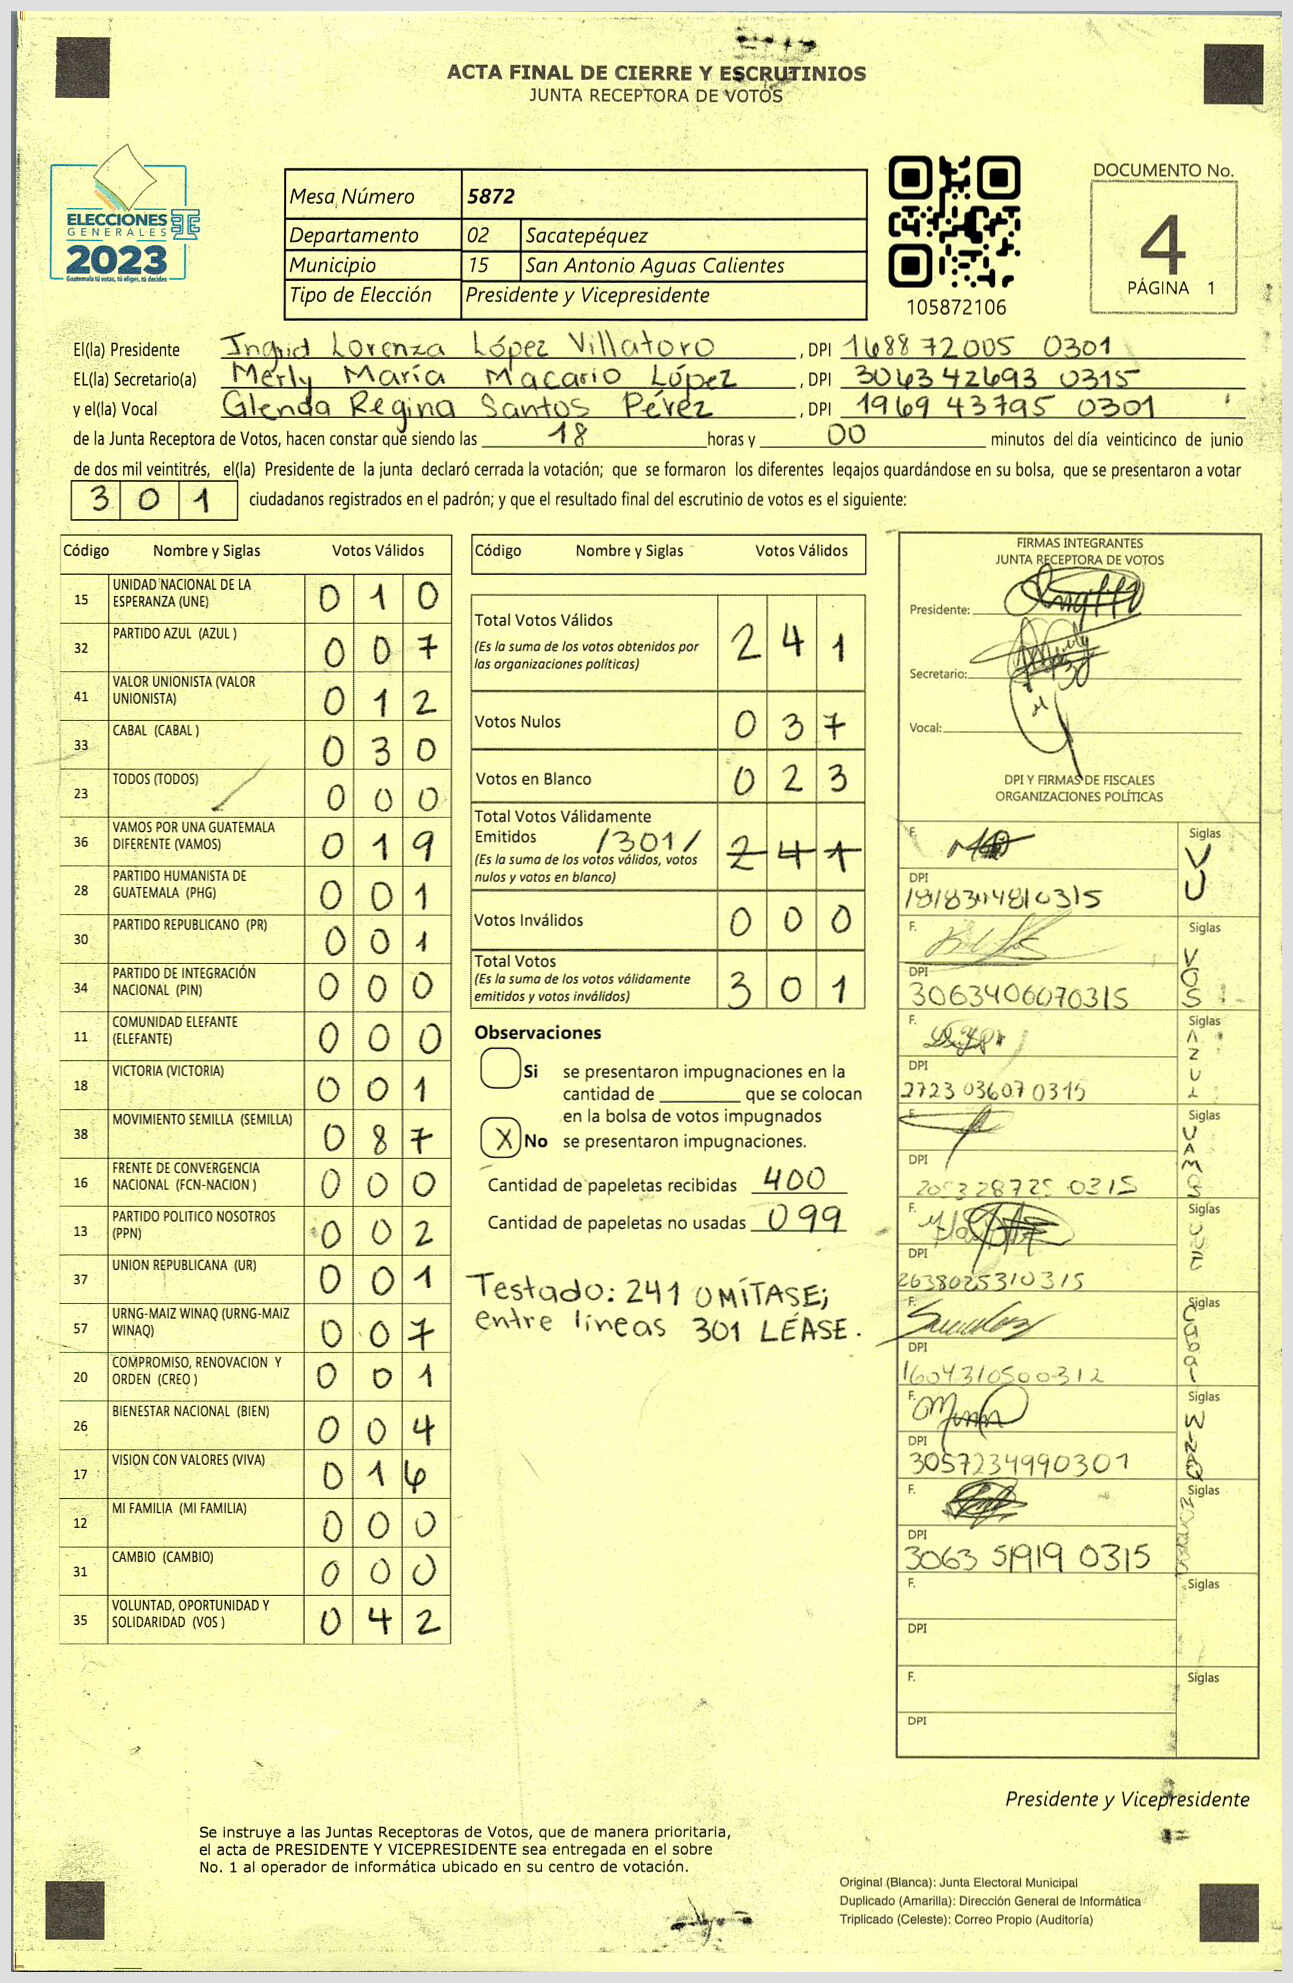 ACTA FINAL DE CIERRE Y ESCRUTINIOS
JUNTA RECEPTORA DE VOTOS
ELECCIONES
GENERALES
2023
Guatemala tú votas, tú eliges, tú decides
Mesa Número 5872
Departamento 02 Sacatepéquez
Municipio 15 San Antonio Aguas Calientes
Tipo de Elección Presidente y Vicepresidente
105872106
DOCUMENTO No.
4
PÁGINA 1
El(la) Presidente Ingrid Lorenza López Villatoro , DPI 1688 72005 0301
EL(la) Secretario(a) Merly María Macario López , DPI 3063 42693 0315
y el(la) Vocal Glenda Regina Santos Pérez , DPI 1969 43795 0301
de la Junta Receptora de Votos, hacen constar que siendo las 18 horas y 00 minutos del día veinticinco de junio
de dos mil veintitrés, el(la) Presidente de la junta declaró cerrada la votación; que se formaron los diferentes legajos guardándose en su bolsa, que se presentaron a votar
301 ciudadanos registrados en el padrón; y que el resultado final del escrutinio de votos es el siguiente:
Código Nombre y Siglas Votos Válidos
15 UNIDAD NACIONAL DE LA ESPERANZA (UNE) 010
32 PARTIDO AZUL (AZUL ) 007
41 VALOR UNIONISTA (VALOR UNIONISTA) 012
33 CABAL (CABAL ) 030
23 TODOS (TODOS) 000
36 VAMOS POR UNA GUATEMALA DIFERENTE (VAMOS) 019
28 PARTIDO HUMANISTA DE GUATEMALA (PHG) 001
30 PARTIDO REPUBLICANO (PR) 001
34 PARTIDO DE INTEGRACIÓN NACIONAL (PIN) 000
11 COMUNIDAD ELEFANTE (ELEFANTE) 000
18 VICTORIA (VICTORIA) 001
38 MOVIMIENTO SEMILLA (SEMILLA) 087
16 FRENTE DE CONVERGENCIA NACIONAL (FCN-NACION ) 000
13 PARTIDO POLITICO NOSOTROS (PPN) 002
37 UNION REPUBLICANA (UR) 001
57 URNG-MAIZ WINAQ (URNG-MAIZ WINAQ) 007
20 COMPROMISO, RENOVACION Y ORDEN (CREO ) 001
26 BIENESTAR NACIONAL (BIEN) 004
17 VISION CON VALORES (VIVA) 016
12 MI FAMILIA (MI FAMILIA) 000
31 CAMBIO (CAMBIO) 000
35 VOLUNTAD, OPORTUNIDAD Y SOLIDARIDAD (VOS ) 042
Código Nombre y Siglas Votos Válidos
Total Votos Válidos 241
(Es la suma de los votos obtenidos por
las organizaciones políticas)
Votos Nulos 037
Votos en Blanco 023
Total Votos Válidamente
Emitidos /301/ 241
(Es la suma de los votos válidos, votos
nulos y votos en blanco)
Votos Inválidos 000
Total Votos 301
(Es la suma de los votos válidamente
emitidos y votos inválidos)
Observaciones
Si se presentaron impugnaciones en la
cantidad de ________ que se colocan
en la bolsa de votos impugnados
X No se presentaron impugnaciones.
Cantidad de papeletas recibidas 400
Cantidad de papeletas no usadas 099
Testado: 241 OMÍTASE;
entre líneas 301 LÉASE.
FIRMAS INTEGRANTES
JUNTA RECEPTORA DE VOTOS
Presidente:
Secretario:
Vocal:
DPI Y FIRMAS DE FISCALES
ORGANIZACIONES POLÍTICAS
F. Siglas VU
DPI
F. Siglas VOS
DPI 3063406070315
F. Siglas AZUL
DPI 2723 03607 0315
F. Siglas VAMOS
DPI
F. Siglas UNE
DPI 2638025310315
F. Siglas Cabal
DPI 1604310500312
F. Siglas WINAQ
DPI 3057234990301
F. Siglas
DPI 3063 51919 0315
F. Siglas
DPI
F. Siglas
DPI
Presidente y Vicepresidente
Se instruye a las Juntas Receptoras de Votos, que de manera prioritaria,
el acta de PRESIDENTE Y VICEPRESIDENTE sea entregada en el sobre
No. 1 al operador de informática ubicado en su centro de votación.
Original (Blanca): Junta Electoral Municipal
Duplicado (Amarilla): Dirección General de Informática
Triplicado (Celeste): Correo Propio (Auditoría)